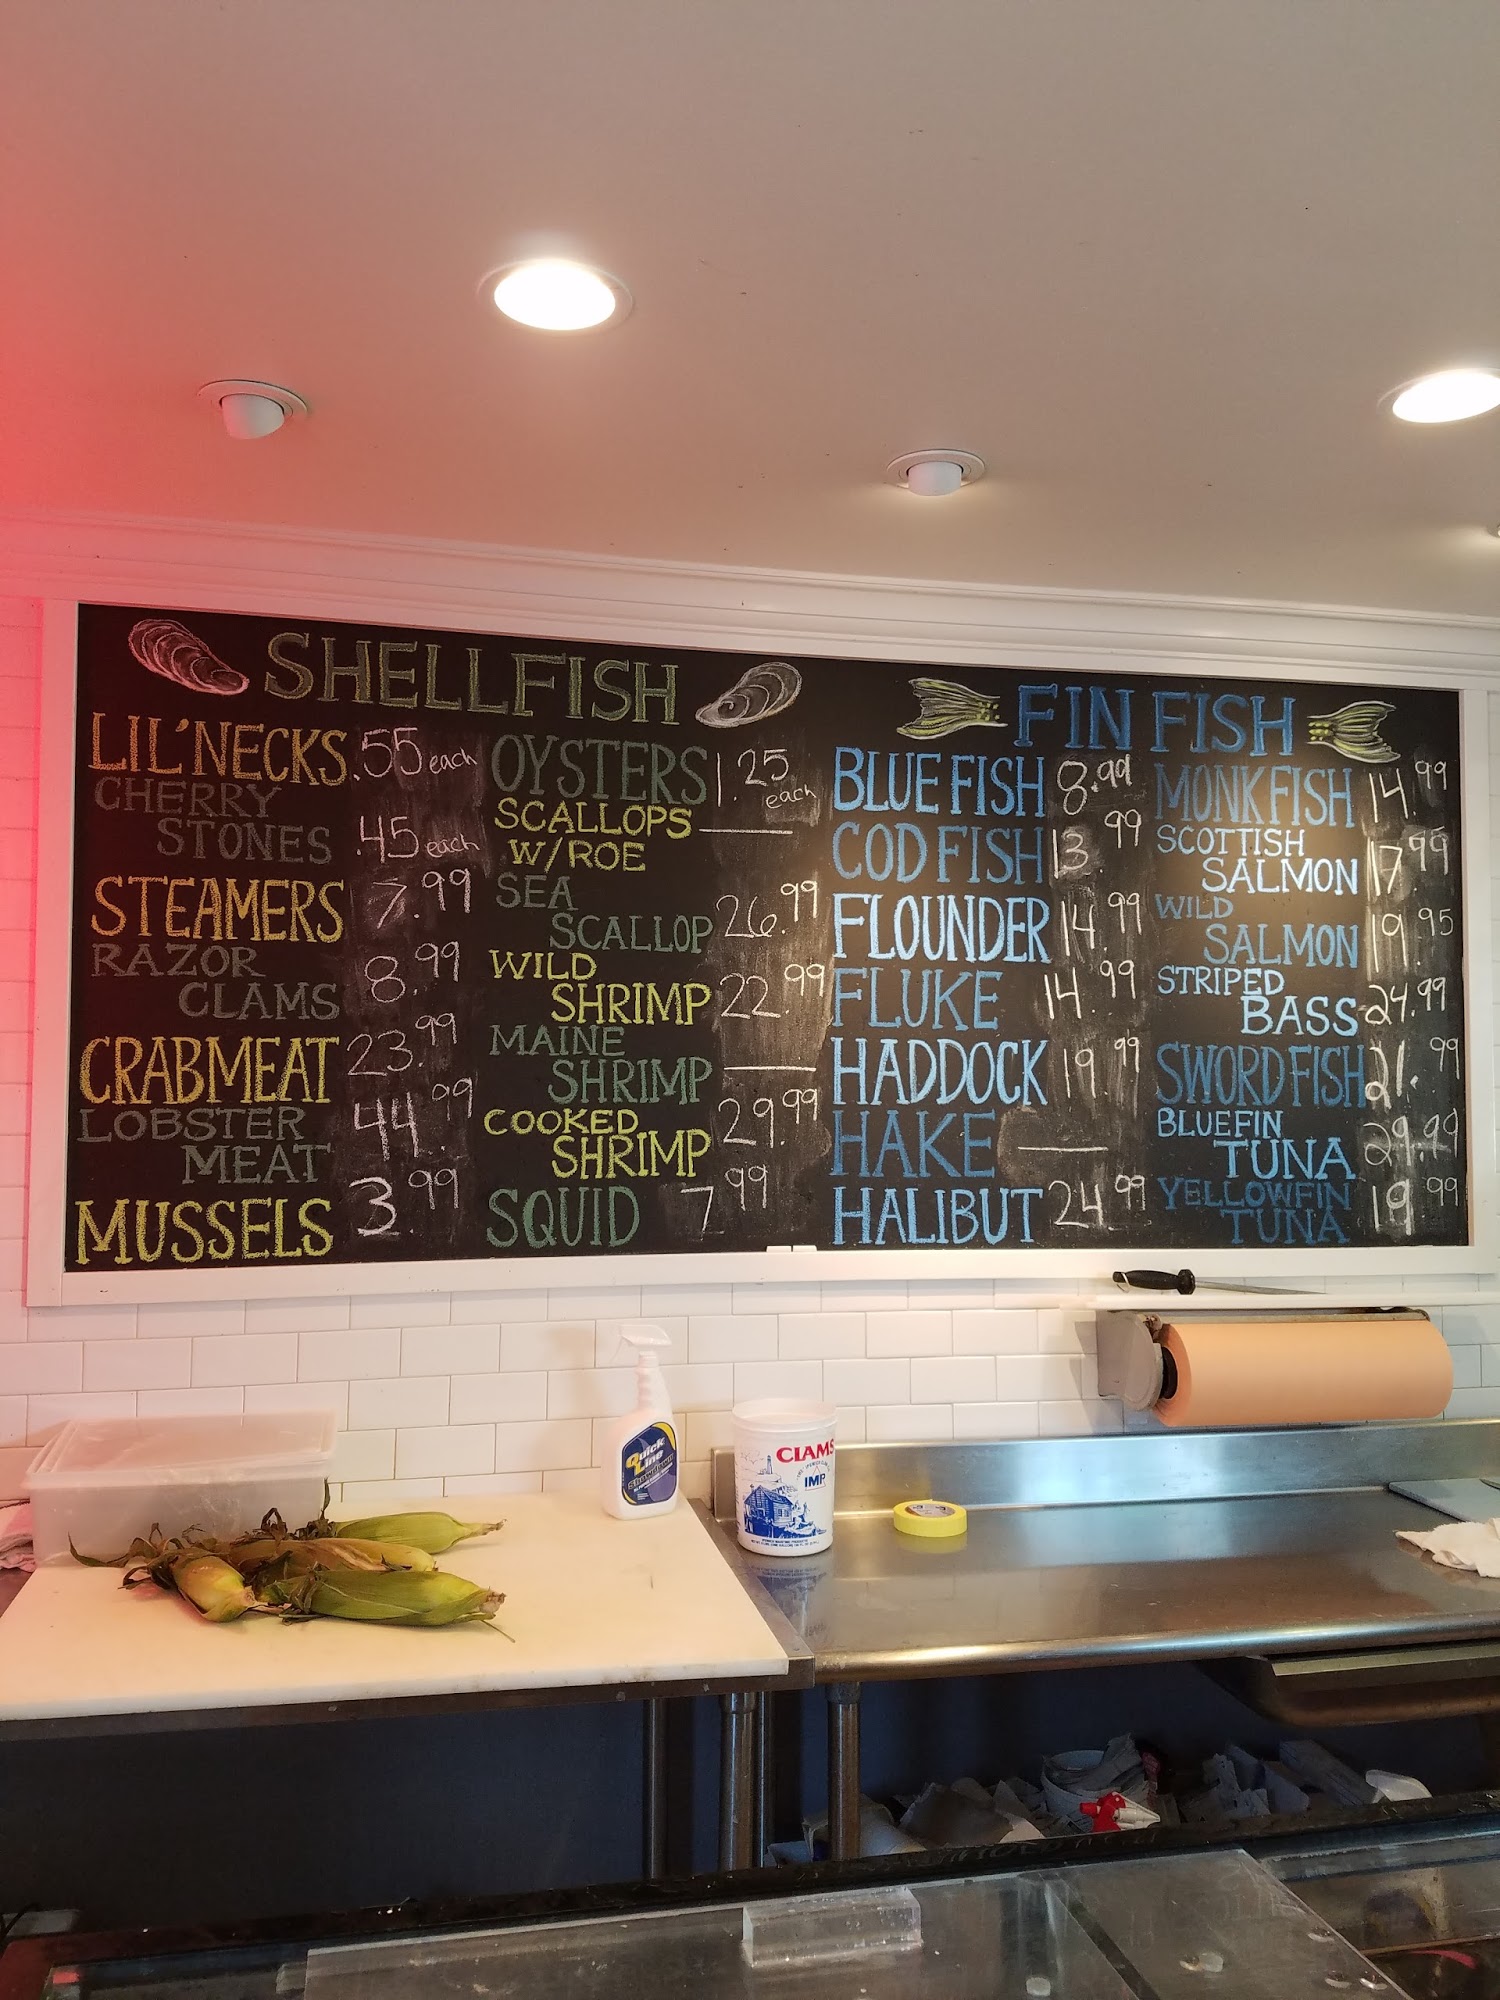 SHELLFISH
LIL'NECKS .55 each
CHERRY
STONES .45 each
STEAMERS 7.99
RAZOR
CLAMS 8.99
CRABMEAT 23.99
LOBSTER
MEAT 44.99
MUSSELS 3.99
OYSTERS 1.25 each
SCALLOPS
W/ROE
SEA
SCALLOP 26.99
WILD
SHRIMP 22.99
MAINE
SHRIMP
COOKED
SHRIMP 29.99
SQUID 7.99
FIN FISH
BLUEFISH 8.99
CODFISH 13.99
FLOUNDER 14.99
FLUKE 14.99
HADDOCK 19.99
HAKE
HALIBUT 24.99
MONKFISH 14.99
SCOTTISH
SALMON 17.99
WILD
SALMON 19.95
STRIPED
BASS 24.99
SWORDFISH 21.99
BLUEFIN
TUNA 29.99
YELLOWFIN
TUNA 19.99
Quick
Line
CLAMS
IMP